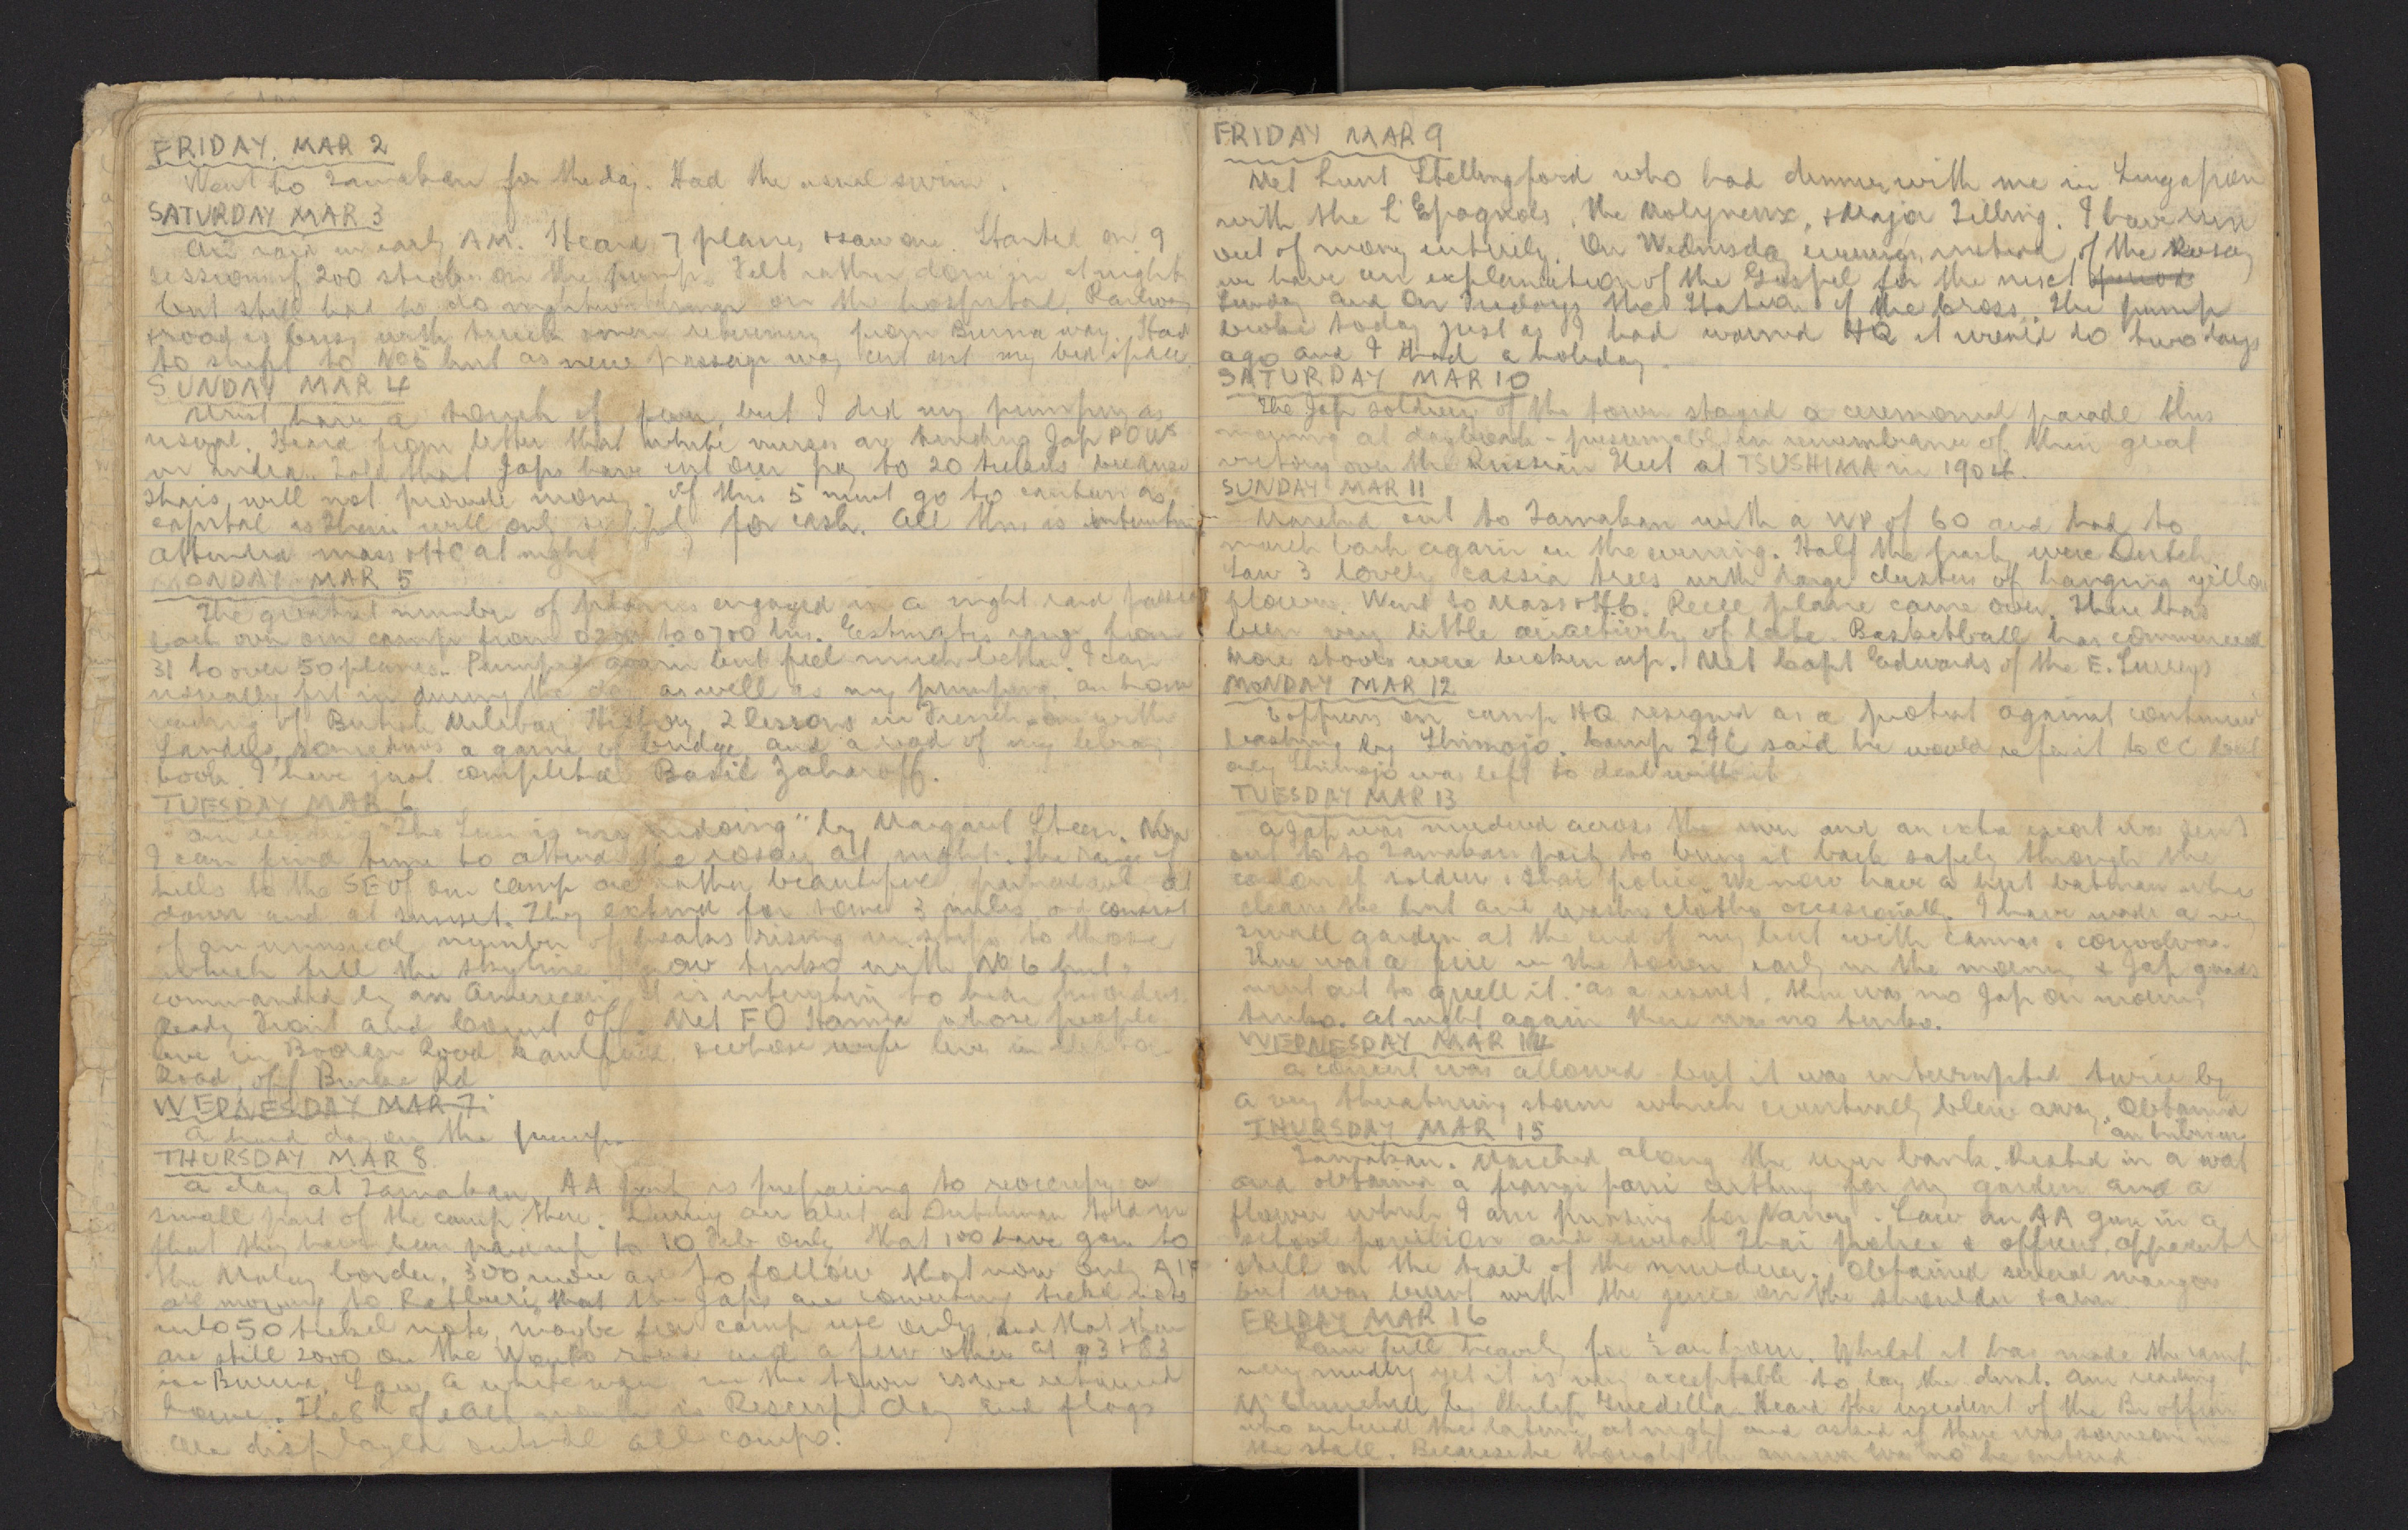 FRIDAY. MAR 2
Went to Tamakan for the day. Had the usual swim.
SATURDAY MAR 3
Air raid in early AM. Heard 7 planes & saw one. Started on 9
sessions of 200 strokes on the pump. Felt rather done in at night
but still had to do on the hospital. Railway
& road is busy with trucks & men returning from Burma way. Had
to shift to No 5 hut as new passage way cut out my bed space.
SUNDAY MAR 4
Must have a touch of fever, but I did my pumping as
usual. Heard from letter that white nurses are tending Jap POWs
in India. Told that Japs have cut our pay to 20 tickals because
Thais will not provide money. Of this 5 must go to canteen as
capital as Thais will only supply for cash. All this is interesting
Attended mass & HC at night
MONDAY MAR 5
The greatest number of planes engaged in a night raid passed
back over our camp from to 0700 hrs. Estimates range from
31 to over 50 planes. Pumped again but feel much better. I can
usually put in during the day as well as my pumping, an hour
reading of British Military History, 2 lessons in French one with
Sandels, sometimes a game of bridge, and a read of my library
book. I have just completed Basil Zaharoff.
TUESDAY MAR 6
am reading "The Sun is my Undoing" by Margaret Steen. Now
I can find time to attend the rosary at night. The range of
hills to the SE of our camp are rather beautiful, particularly at
dawn and at sunset. They extend for some 3 miles and consist
of an unusual number of peaks rising in steps to those
which fill the skyline. I now tenko with No 6 hut,
commanded by an American. It is interesting to hear his orders
Ready Front and Count Off. Met FO whose people
live in Road Caulfield, & whose wife lives in
Road, off Burke Rd
WEDNESDAY MAR 7.
A hard day on the pump.
THURSDAY MAR 8.
A day at Tamakan. AA party is preparing to reoccupy a
small part of the camp there. During air alert a Dutchman told me
that they have been paid up to 10 Feb only, that 100 have gone to
the Malay border, 300 more are to follow, that now only AIF
are moving to Ratburi, that the Japs are converting tickal notes
into 50 tickal notes, maybe for camp use only, and that there
are still 2000 on the road and a few others at &
in Burma. Saw a white in the town as we returned
home. The 8th of each month is Rescript day and flags
are displayed outside all camps.
FRIDAY MAR 9
Met Lieut Shellingford who had dinner with me in Singapore
with the L'Epagnols, the Molyneux, & Major Tilling. I have run
out of money entirely. On Wednesday evenings, instead of the Rosary
we have an explanation of the Gospel for the next period
Sunday and on Fridays the Station of the Cross. The pump
broke today just as I had warned HQ it would do two days
ago and I had a holiday.
SATURDAY MAR 10
The Jap soldiery of the town staged a ceremonial parade this
morning at daybreak - presumably in remembrance of their great
victory over the Russian fleet at TSUSHIMA in 1904.
SUNDAY MAR 11
Marched out to Tamakan with a WP of 60 and had to
march back again in the evening. Half the party were Dutch.
Saw 3 lovely cassia trees with large clusters of hanging yellow
flowers. Went to Mass & H.C. Recce plane came over. There has
been very little air activity of late. Basketball has commenced
More stools were broken up. Met Capt Edwards of the E. Surreys
MONDAY MAR 12
Officers on camp HQ resigned as a protest against continued
bashing by Shimojo. Camp 2IC said he would refer it to CC but
only Shimojo was left to deal with it
TUESDAY MAR 13
A Jap was murdered across the river and an extra escort was sent
out to to Tamakan party to bring it back safely through the
cordon of soldiers & Thai police. We now have a hut batman who
cleans the hut and washes clothes occasionally. I have made a very
small garden at the end of my hut with cannas & convolvus.
There was a fire in the town early in the morning & Jap guards
went out to quell it. As a result, there was no Jap on morning
tenko. At night again there was no tenko.
WEDNESDAY MAR 14
A concert was allowed but it was interrupted twice by
a very threatening storm which eventually blew away. Obtained
THURSDAY MAR 15
Tamakan. Marched along the river bank. Rested in a wat
and obtained a frangi panni cutting for my garden and a
flower which I am pressing for Nancy. Saw an AA gun in a
school pavilion and several Thai police & officers, apparently
still on the trail of the murderer. Obtained several mangoes
but was burnt with the juice on the shoulder &
FRIDAY MAR 16
Rain fell heavily for ½ an hour. Whilst it has made the camp
very muddy yet it is very acceptable to lay the dust. Am reading
Mr Churchill by Philip Guedella. Heard the incident of the Br officer
who entered the latrine at night and asked if there was someone in
the stall. Because he thought the answer was 'no' he entered